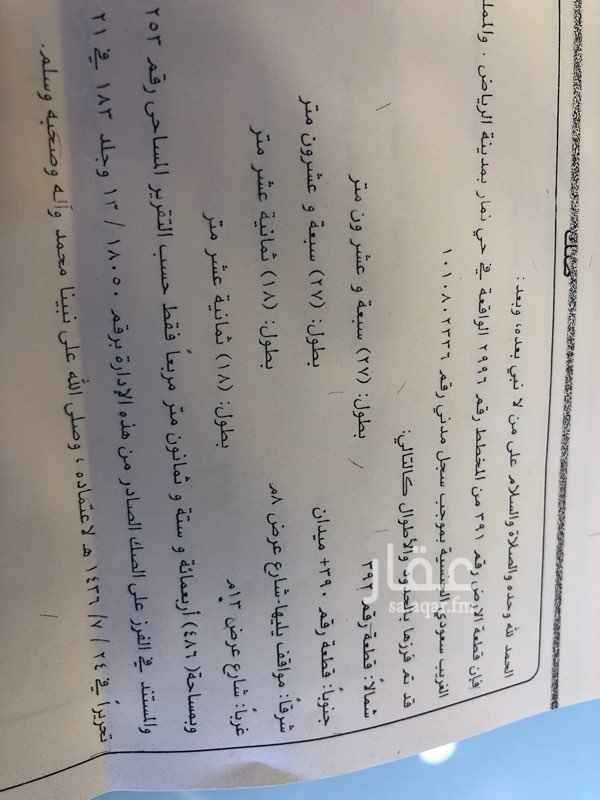 الحمد لله وحده والصلاة والسلام على من لا نبي بعده، وبعد:
فإن قطعة الارض رقم ٣٩١ من المخطط رقم ٢٩٩٦ الواقعة في حي نمار بمدينة الرياض . والمملـ
الغريب سعودي الجنسية بموجب سجل مدني رقم ١٠١٠٨٠٢٣٣٦
قد تم فرزها بالحدود والأطوال كالتالي:
شمالاً: قطعة رقم ٣٩٢ بطول: (٢٧) سبعة و عشرون متر
جنوباً: قطعة رقم ٣٩٠+ ميدان بطول: (٢٧) سبعة و عشرون متر
شرقاً: مواقف يليها شارع عرض ٨م بطول: (١٨) ثمانية عشر متر
غرباً: شارع عرض ١٣م بطول: (١٨) ثمانية عشر متر
وبمساحة (٤٨٦) أربعمائة و ستة و ثمانون متر مربعاً فقط حسب التقرير المساحي رقم ٢٥٣
والمستند في الفرز على الصك الصادر من هذه الإدارة برقم ١٨٠٥٠ / ١٣ وجلد ١٨٣ في ٢١
تحريراً في ٢٤ / ٧ / ١٤٣٦ هـ لاعتماده ، وصلى الله على نبينا محمد وآله وصحبه وسلم.
عقار
sa.aqar.fm